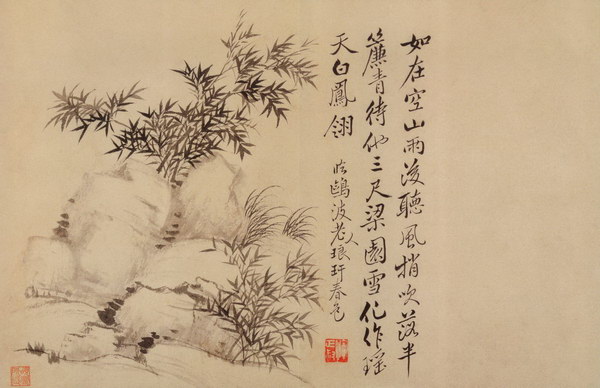 如在空山雨后聽風梢吹落半
簾青待他三尺梁園雪化作瑶
天白鳳翎
临鷗波老人琅玕春色